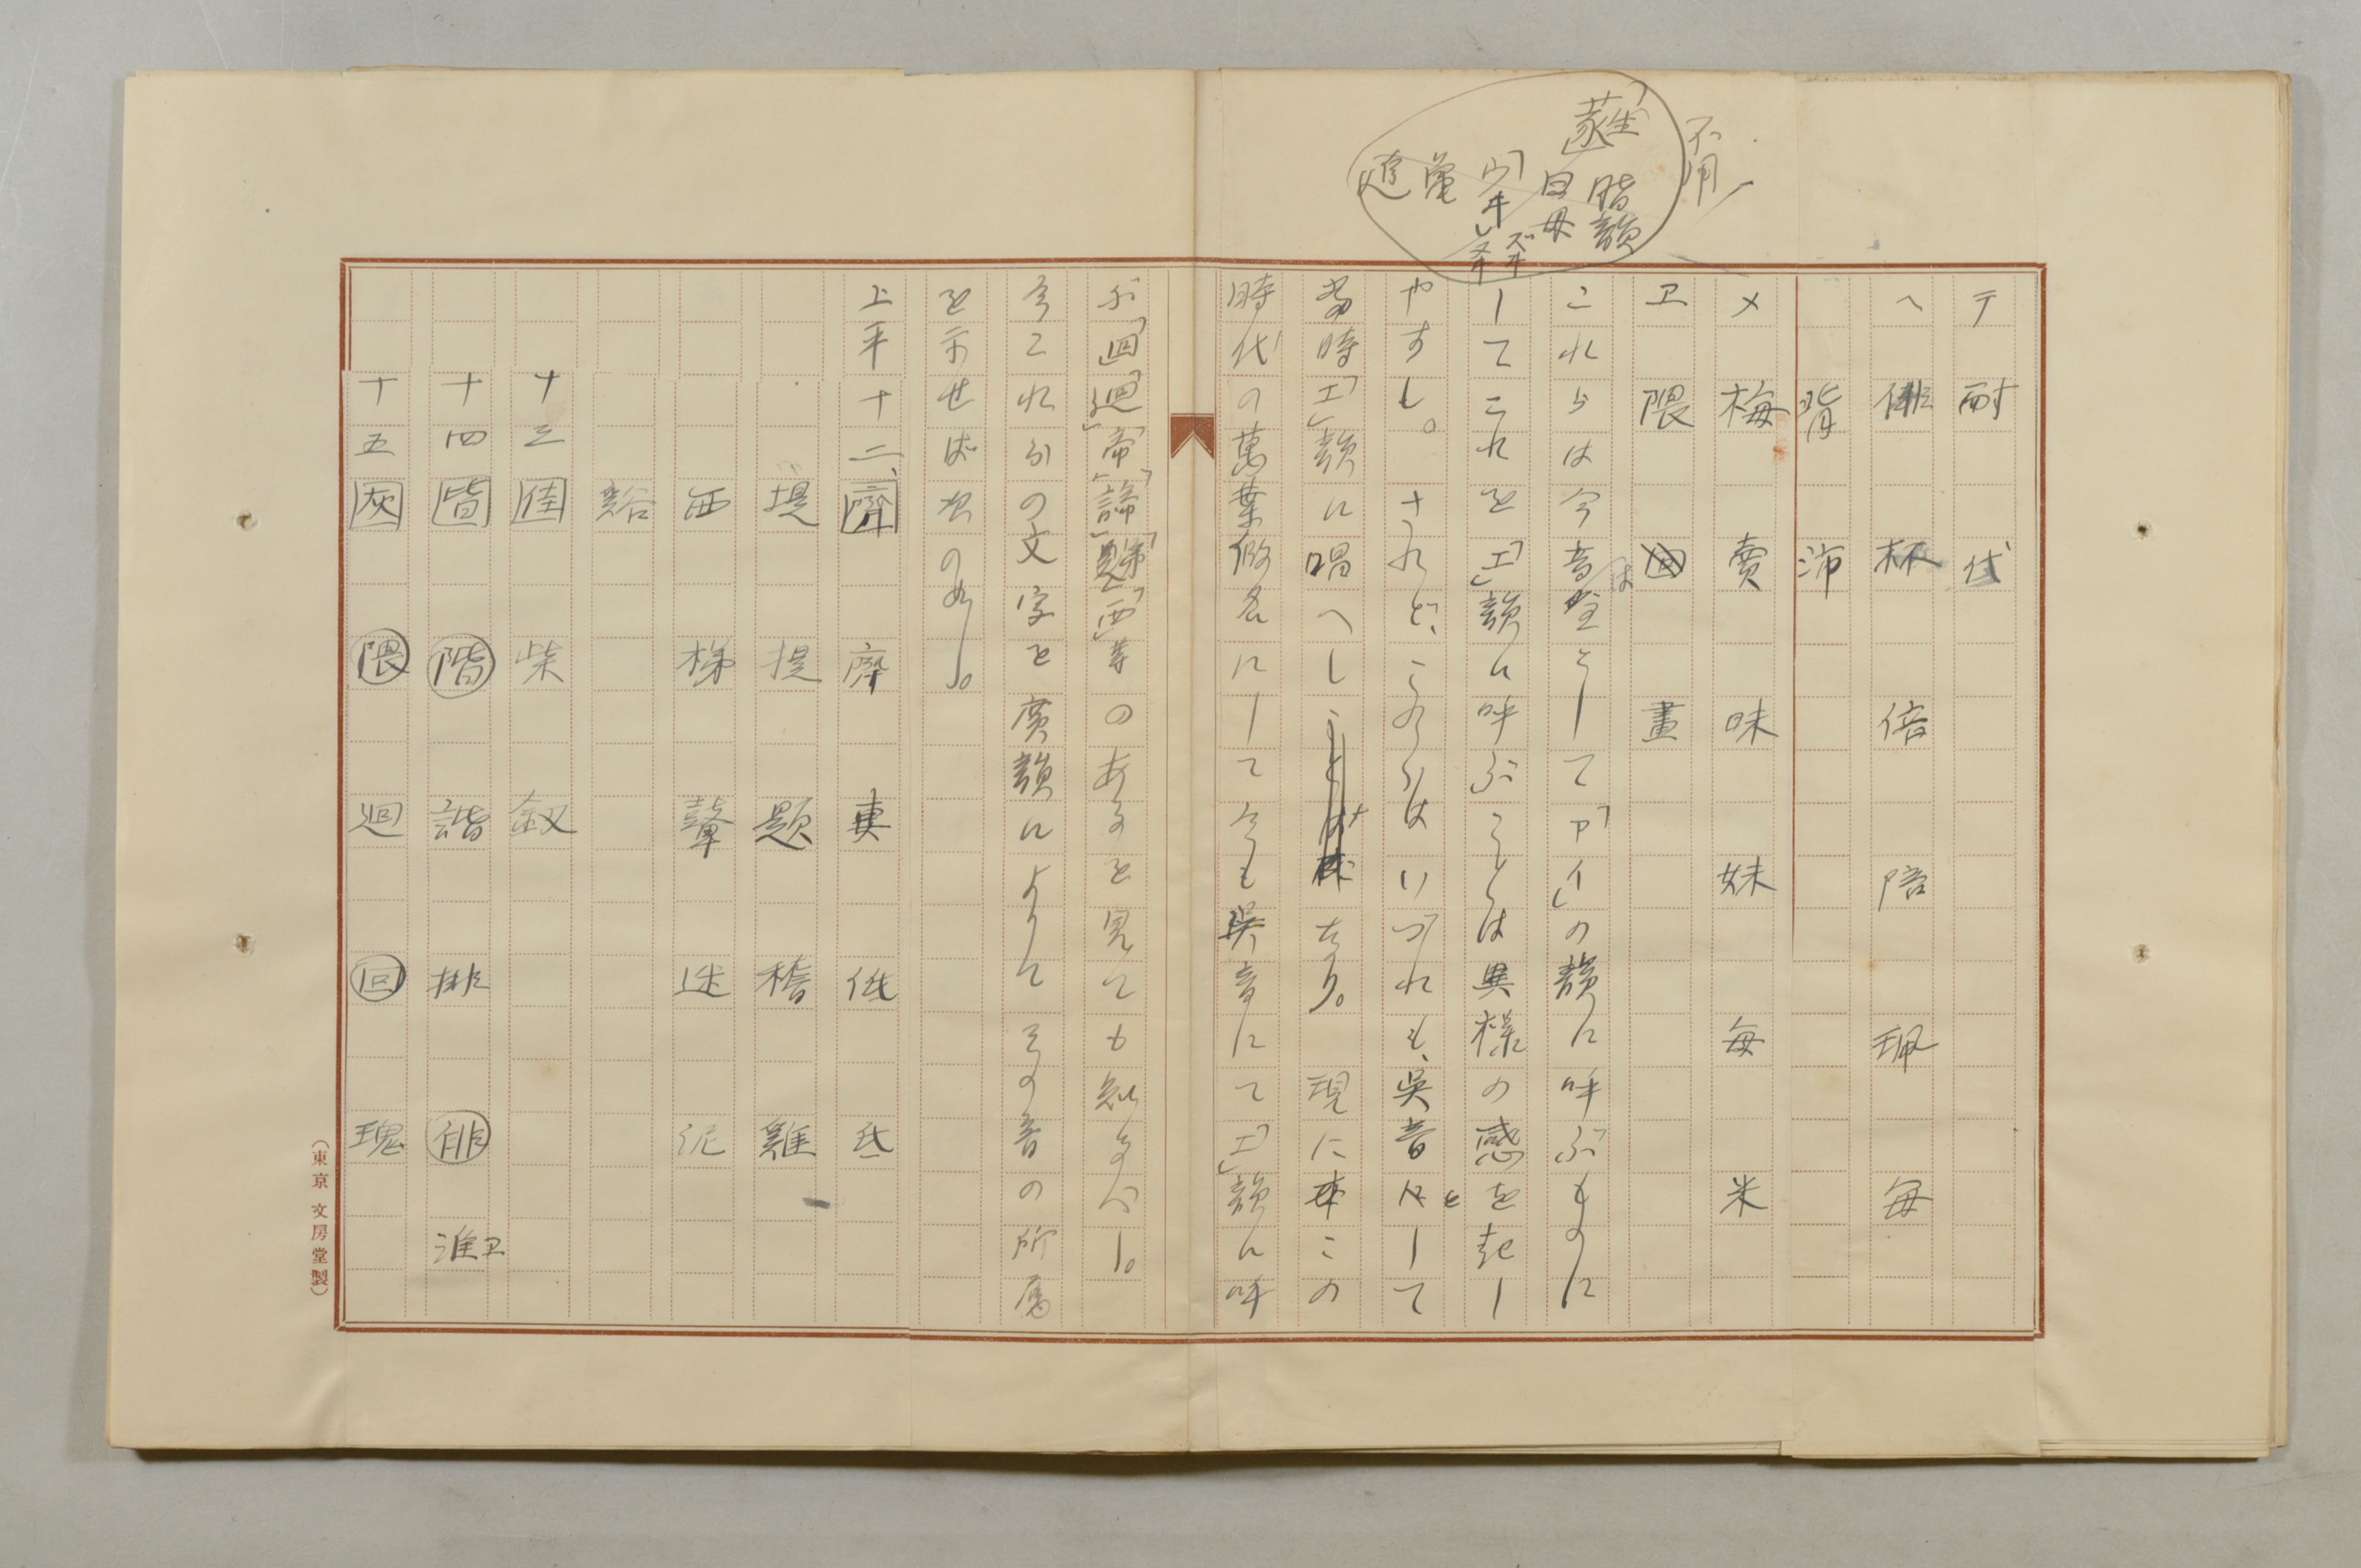 不用
脂韻
白母
テ 耐 代
ヘ 俳 杯 倍 陪 珮 毎
背 沛
メ 梅 賣 味 妹 毎 米
ヱ 隈 回 畫
これらは今音は主として「アイ」の韻に呼ぶものに
してこれを「エ」韻に呼ぶことは異様の感を起し
やすし。されど、これらはいづれも、呉音として
當時「エ」韻に唱へしなり。現に本この
時代の萬葉假名にして今も呉音にて「エ」韻に呼
ぶ「回」「廻」「帝」「諦」「西」等のあるを見ても知るべし。
今これらの文字を廣韻によりてその音の所屬
を示せば次の如し。
上平十二、齊 齊 妻 低 氐
堤 提 題 稽 雞
西 梯 鼙 迷 泥
谿
十三 佳 柴 釵
十四 皆 階 諧 排 俳 淮ヱ
十五 灰 隈 廻 回 瑰
（東京 文房堂製）